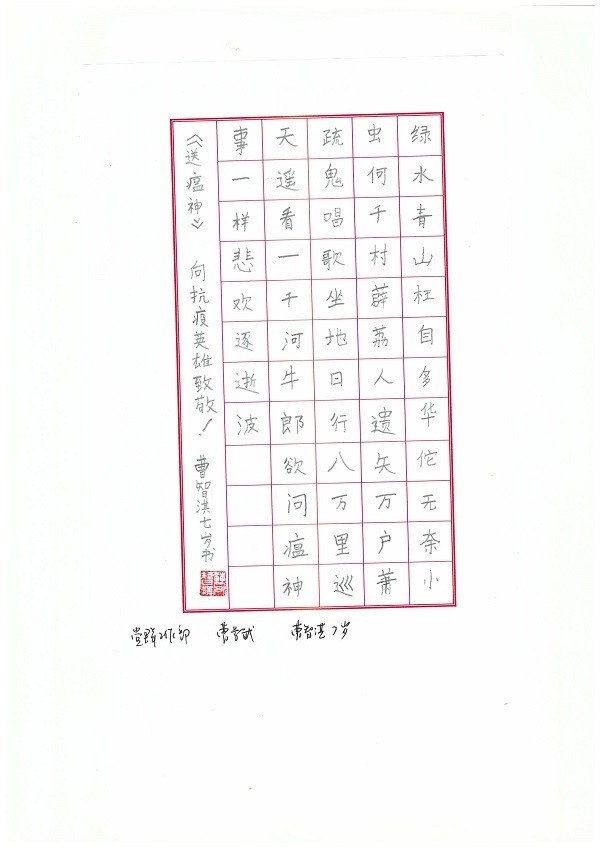 绿水青山枉自多华佗无奈小
虫何千村薜荔人遗矢万户萧
疏鬼唱歌坐地日行八万里巡
天遥看一千河牛郎欲问瘟神
事一样悲欢逐逝波
《送瘟神》 向抗疫英雄致敬！ 曹智淇七岁书
党群工作部 曹 曹智淇7岁